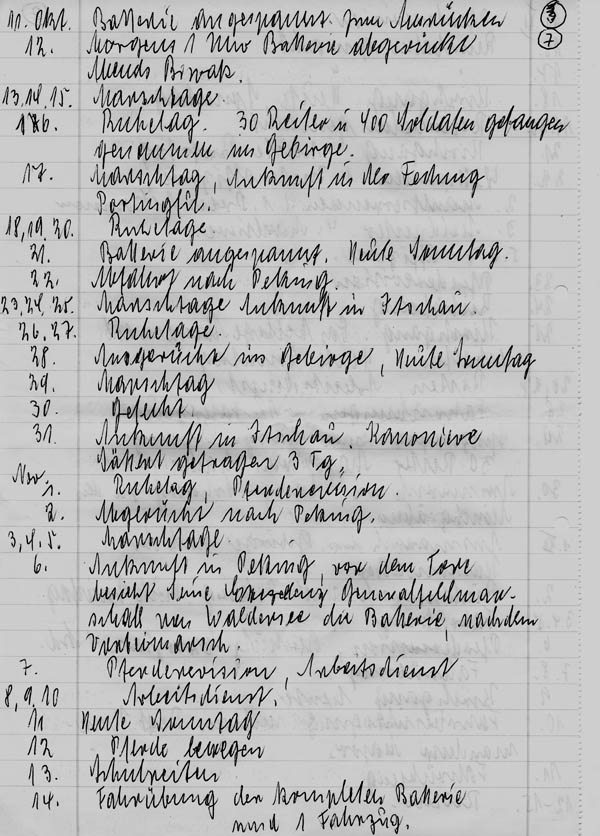 3
7
11. Okt. Batterie angespannt zum Ausrücken
12. Morgens 1 Uhr Batterie abgerückt
Abends Biwak.
13,14,15. Marschtage.
16. Ruhetag. 30 Reiter u 400 Soldaten gefangen
genommen im Gebirge.
17. Marschtag, Ankunft in der Festung
18,19,20. Ruhetage
21. Batterie angespannt. Heute Sonntag.
22. Abfahrt nach Peking.
23,24,25. Marschtage Ankunft in Itschau.
26,27. Ruhetage.
28. Ausgerückt ins Gebirge, Heute Sonntag
29. Marschtag
30. Gefecht.
31. Ankunft in Itschau. Kanoniere
getragen 3 Tg.
Nov. 1. Ruhetag, Pferderevision.
2. Abgerückt nach Peking.
3,4,5. Marschtage
6. Ankunft in Peking, vor dem Tore
besicht Seine Generalfeldmar-
schall von Waldersee die Batterie, nachdem
Vorbeimarsch.
7. Pferderevision, Arbeitsdienst
8,9,10 Arbeitsdienst.
11 Heute Sonntag
12 Pferde bewegen
13. Schulreiten
14. Fahrübung der kompleten Batterie
und 1 Fahrzüg.